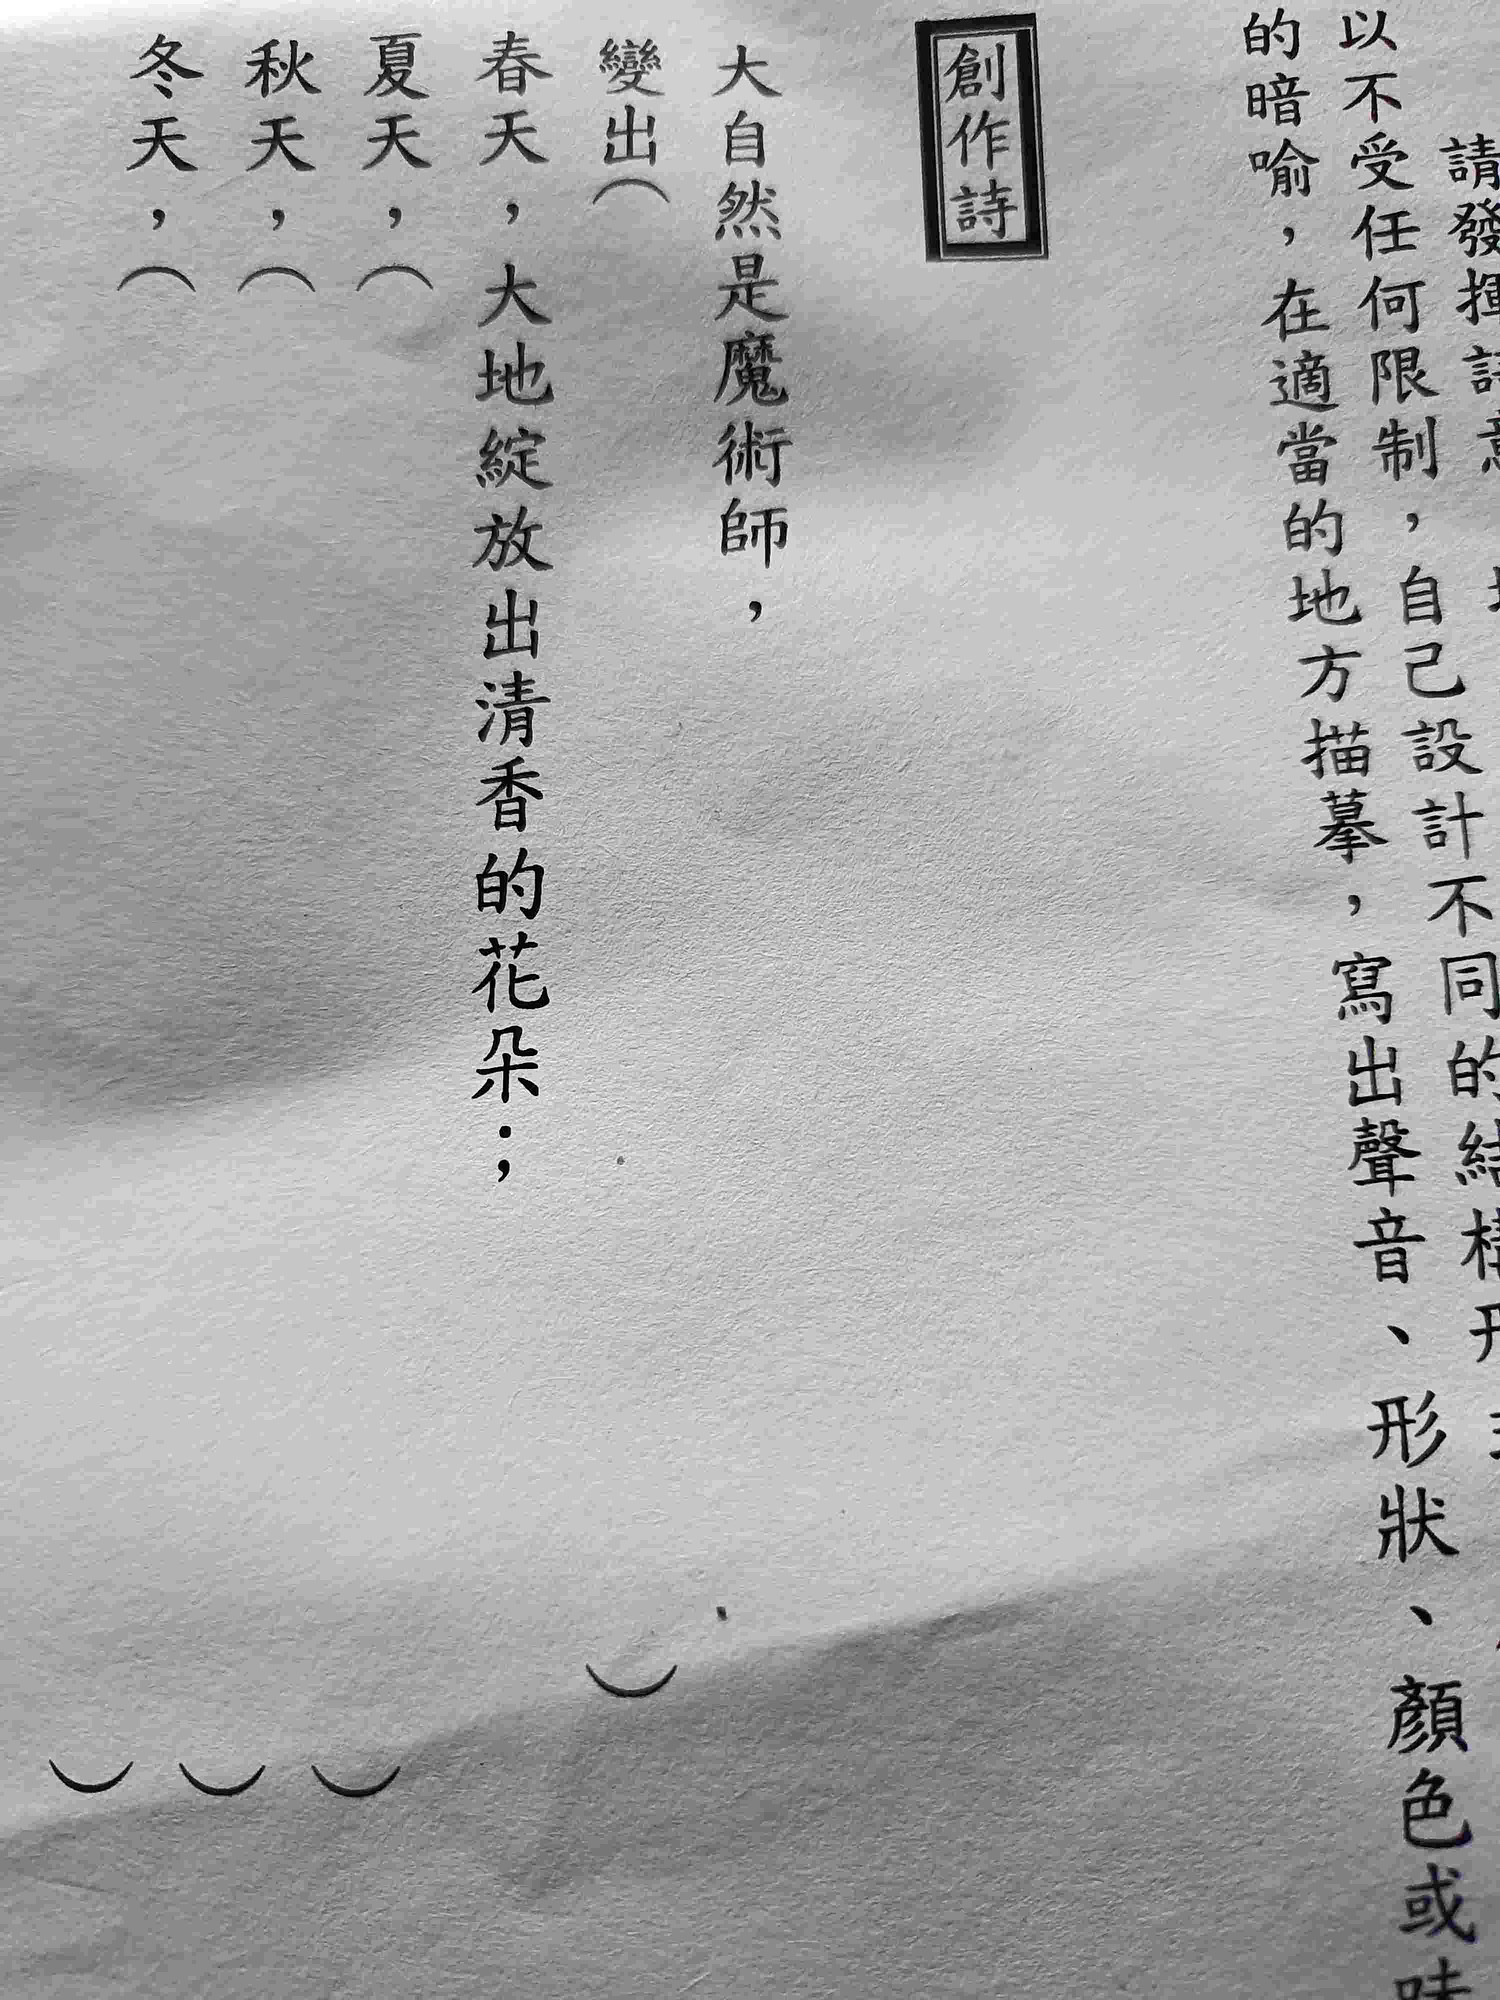 請發揮詩意
以不受任何限制，自己設計不同的結構形
的暗喻，在適當的地方描摹，寫出聲音、形狀、顏色或味
創作詩
大自然是魔術師，
變出（　　）
春天，大地綻放出清香的花朵；
夏天，（　　）
秋天，（　　）
冬天，（　　）